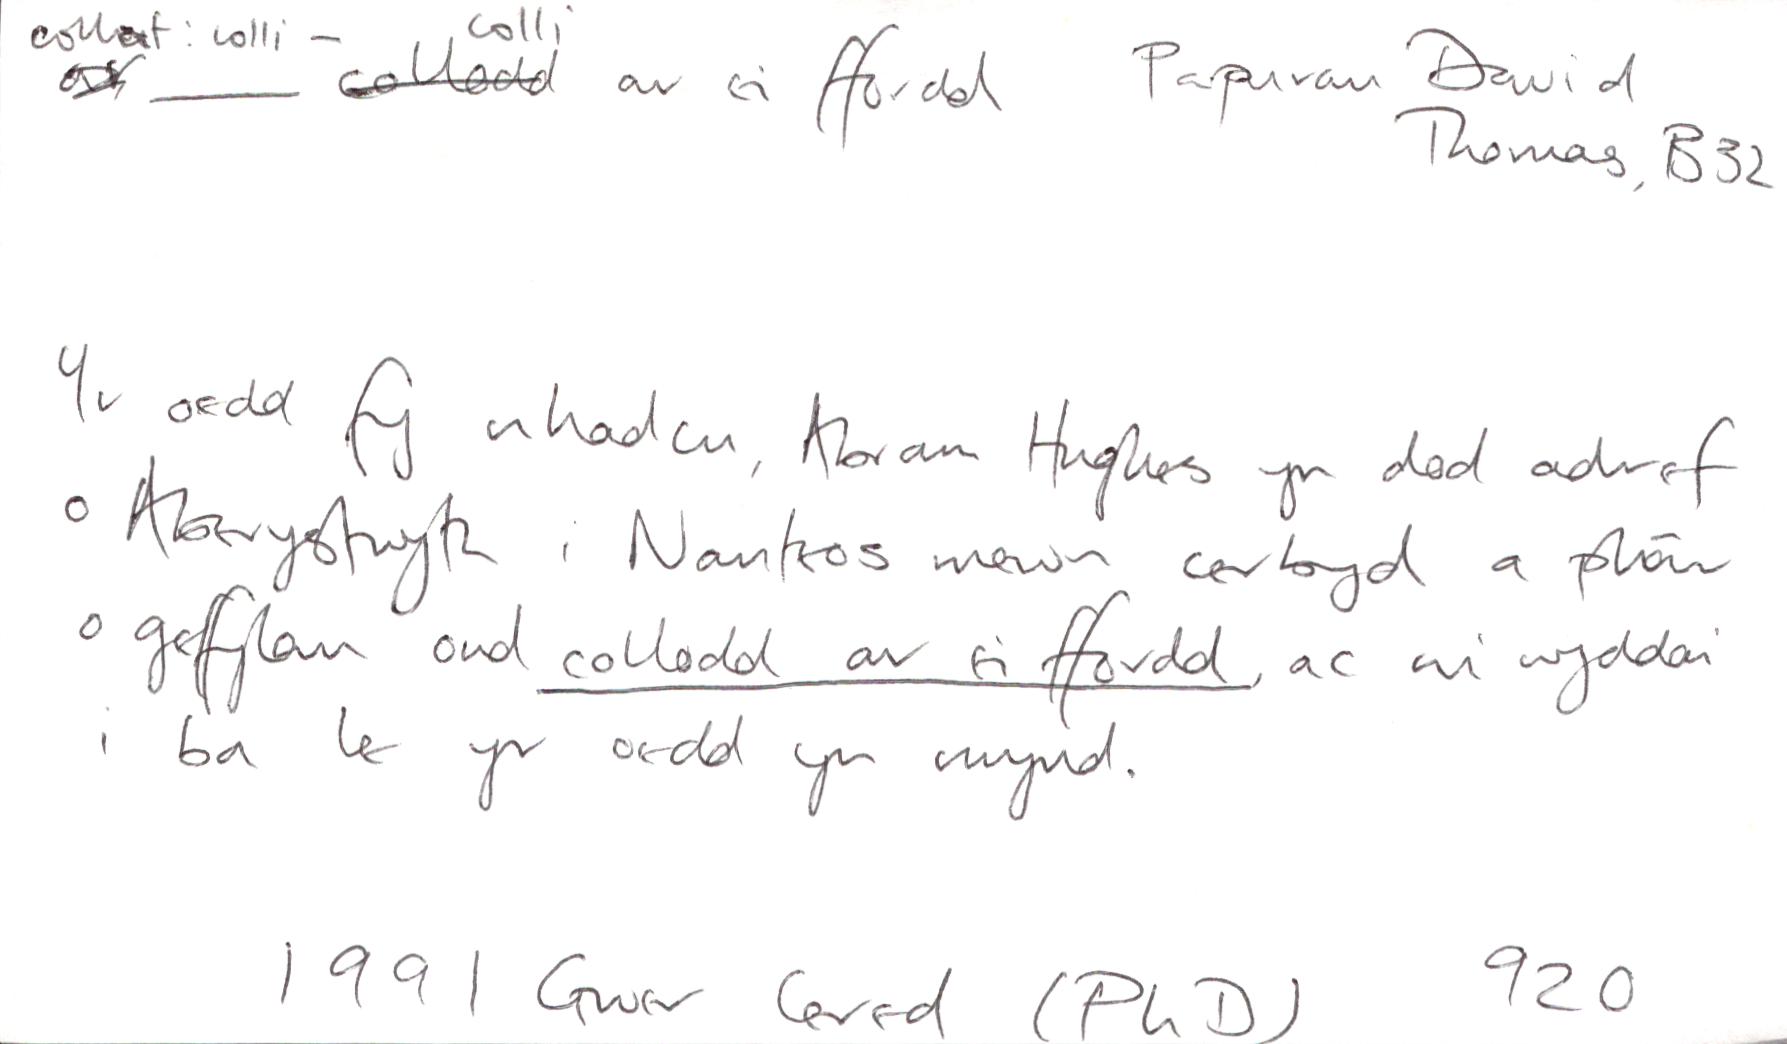 collat: colli – colli
ar ___ colledd ar ei ffordd Papurau David
Thomas, B32
Yr oedd fy nhadcu, Abram Hughes yn dod adref
o Aberystwyth i Nanteos mewn cerbyd a phâr
o geffylau ond colledd ar ei ffordd, ac ni wyddai
i ba le yr oedd yn mynd.
1991 Gwer Cered (PhD) 920